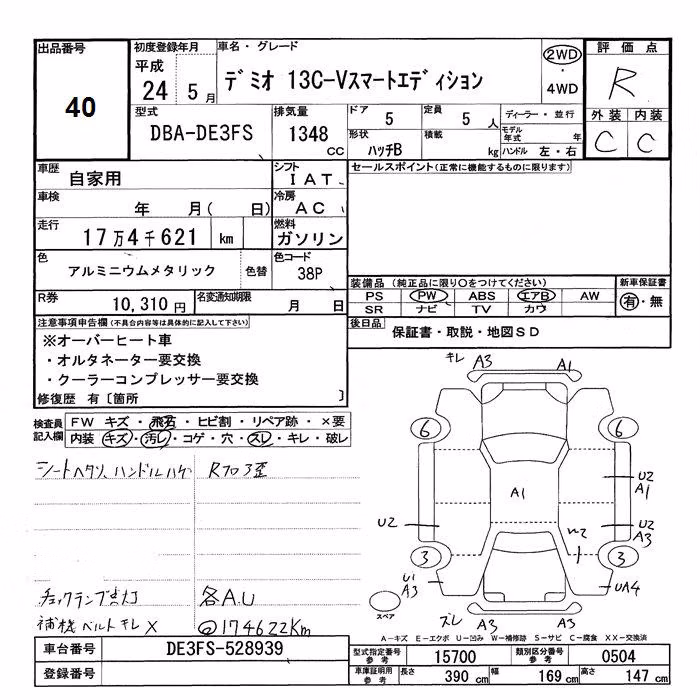 出品番号
40
初度登録年月
平成
24 5 月
車名・グレード
デミオ 13C-Vスマートエディション
2WD
・
4WD
評価点
R
外装 内装
C C
型式
DBA-DE3FS
排気量
1348
CC
ドア
5
定員
5 人
形状
ハッチB
積載
kg
ディーラー・並行
モデル年式 年
ハンドル 左・右
車歴
自家用
シフト
IAT
車検
年 月( 日)
冷房
AC
走行
17万4千621 km
燃料
ガソリン
色
アルミニウムメタリック
色替
色コード
38P
R券
10,310円
名変通知期限
月 日
セールスポイント(正常に機能するものに限ります)
装備品 (純正品に限り○をつけてください)
PS PW ABS エアB AW
SR ナビ TV カワ
新車保証書
有・無
後日品
保証書・取説・地図SD
注意事項申告欄(不具合内容等は具体的に記入して下さい)
※オーバーヒート車
・オルタネーター要交換
・クーラーコンプレッサー要交換
修復歴 有〔箇所 〕
検査員
記入欄
FW キズ・飛石・ヒビ割・リペア跡・×要
内装 キズ・汚レ・コゲ・穴・スレ・キレ・破レ
シートヘタリ、ハンドルハゲ
Rフロア歪
チェックランプ点灯
各A.U
補機ベルトキレ X
@174622Km
キレ A3 A1
6 6
A1
U2 A1
U2
U2 A3
3 3
U1 A3
UA4
スレ A3 A3
スペア
A-キズ E-エクボ U-凹み W-補修跡 S-サビ C-腐食 XX-交換済
車台番号
DE3FS-528939
登録番号
型式指定番号
参考
15700
類別区分番号
参考
0504
車庫証明用
参考
長さ
390 cm
幅
169 cm
高さ
147 cm